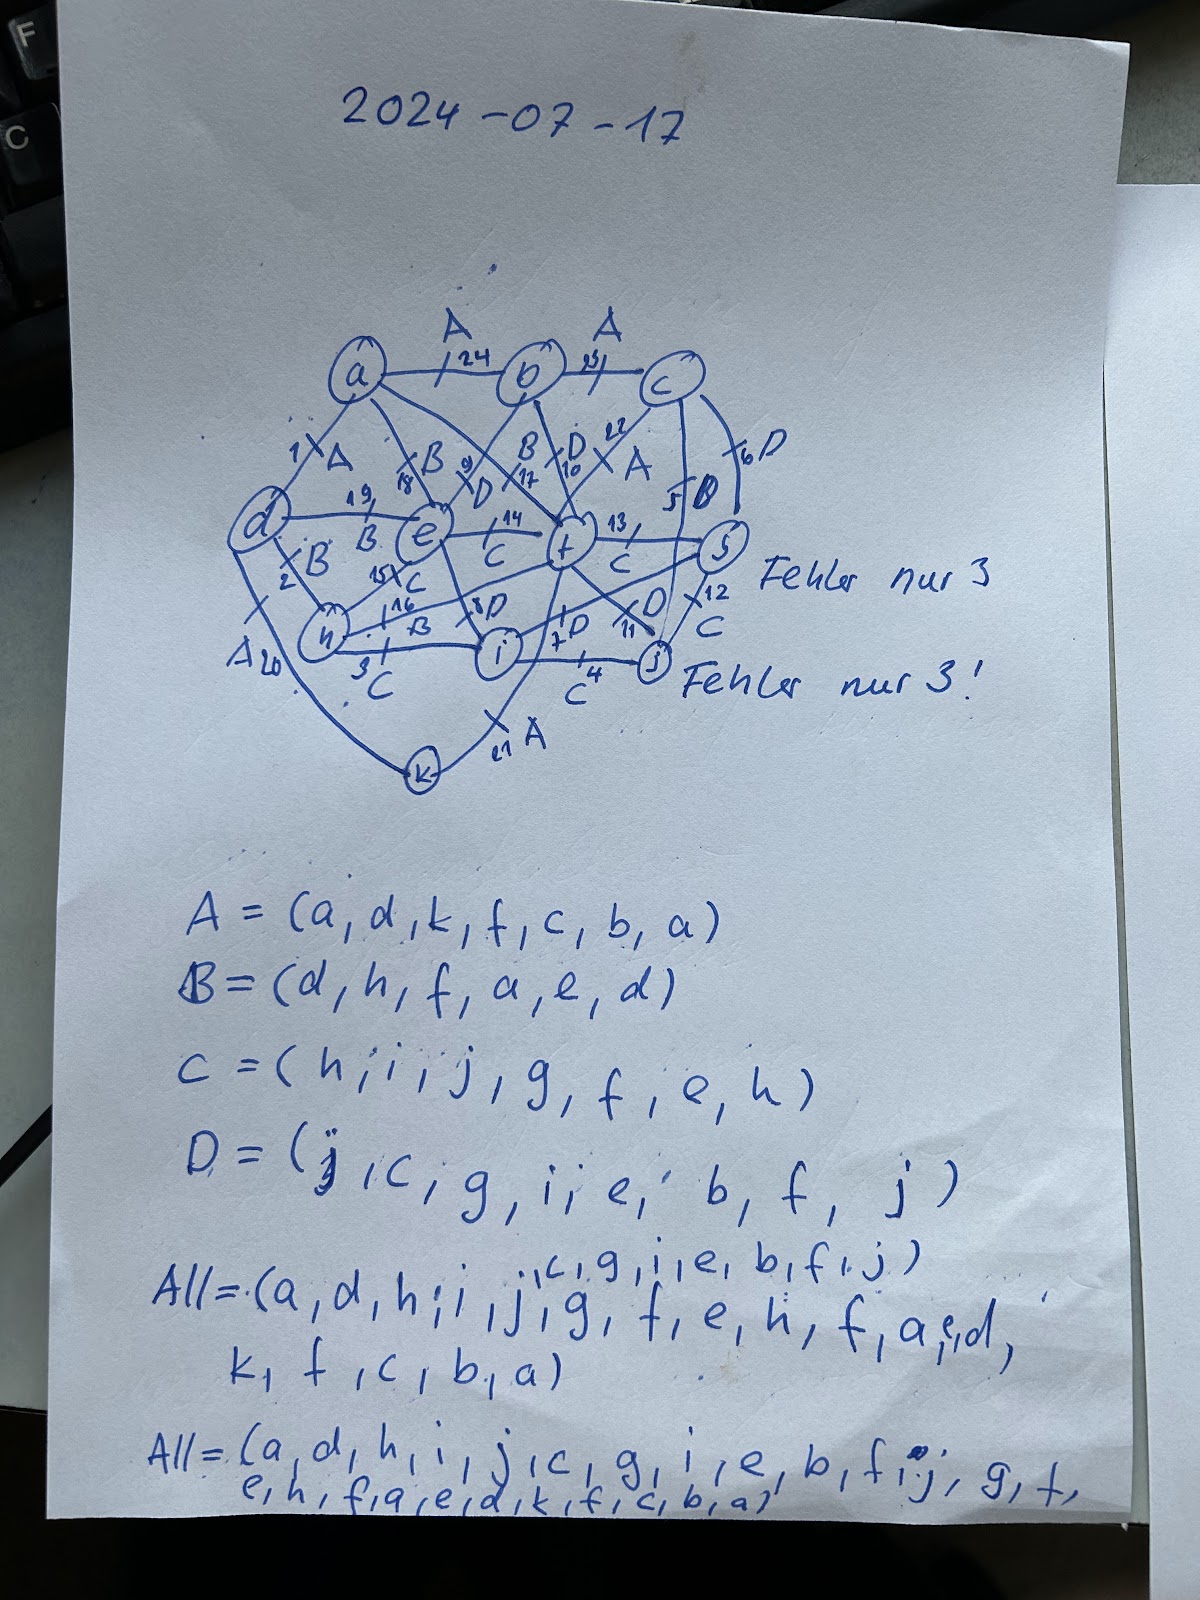 F
C
2024-07-17
A A
a 24 b 23 c
1 A 18 B 9 D B 17 D 10 22 A 5 B 6 D
d 19 B e 14 C f 13 C g
Fehler nur 3
2 B 15 C 16 B 8 D 7 D 11 D 12 C
h 3 C i C 4 j
Fehler nur 3!
A 20 21 A
k
A = (a, d, k, f, c, b, a)
B = (d, h, f, a, e, d)
C = (h, i, j, g, f, e, h)
D = (j, c, g, i, e, b, f, j)
, c, g, i, e, b, f, j)
All = (a, d, h, i, j, g, f, e, h, f, a, e, d,
k, f, c, b, a)
All = (a, d, h, i, j, c, g, i, e, b, f, j, g, f,
e, h, f, a, e, d, k, f, c, b, a)